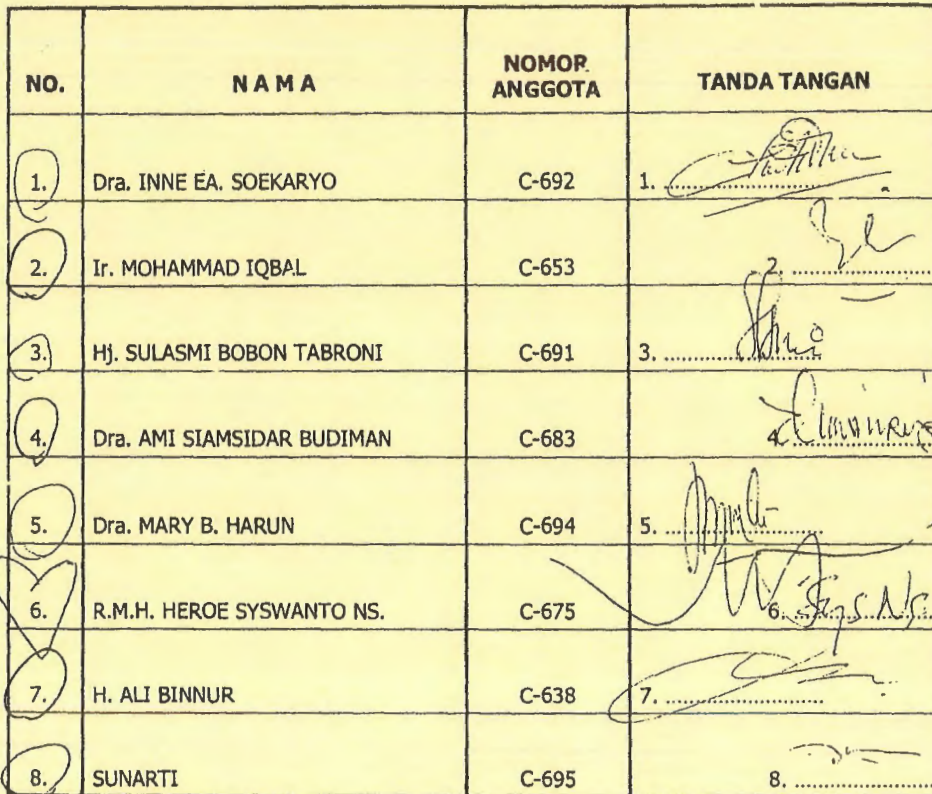 NO. N A M A NOMOR ANGGOTA TANDA TANGAN
1. Dra. INNE EA. SOEKARYO C-692 1. ....................
2. Ir. MOHAMMAD IQBAL C-653 2. ....................
3. Hj. SULASMI BOBON TABRONI C-691 3. ....................
4. Dra. AMI SIAMSIDAR BUDIMAN C-683 4. ....................
5. Dra. MARY B. HARUN C-694 5. ....................
6. R.M.H. HEROE SYSWANTO NS. C-675 6. Sys. Ns.
7. H. ALI BINNUR C-638 7. ....................
8. SUNARTI C-695 8. ....................